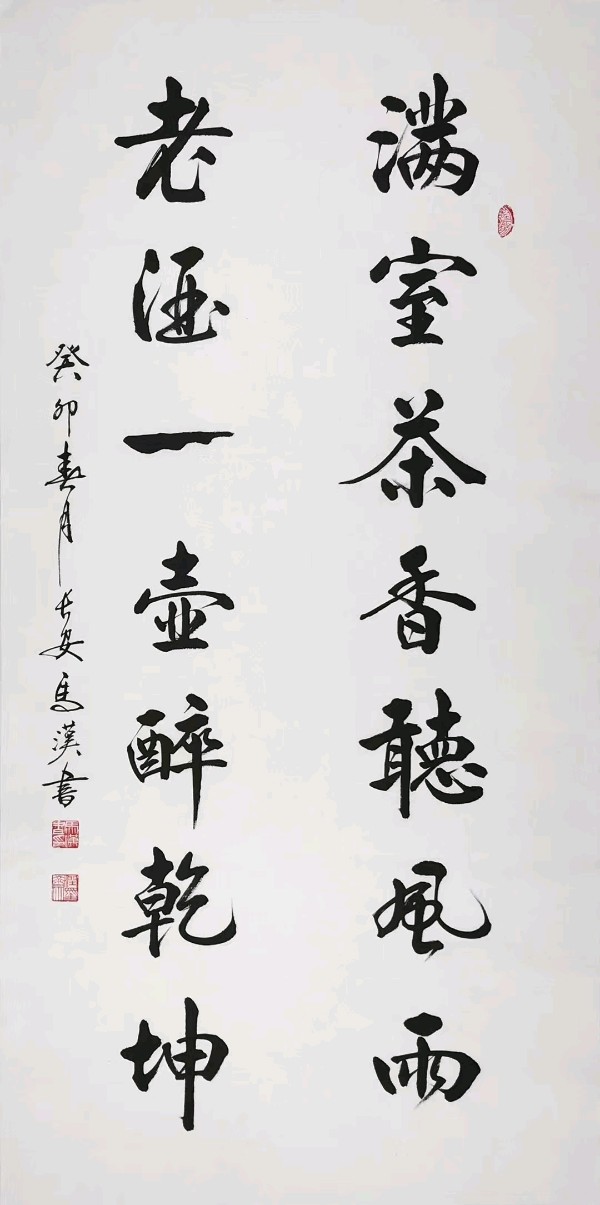 滿室茶香聽風雨
老酒一壺醉乾坤
癸卯春月長安馬漢書